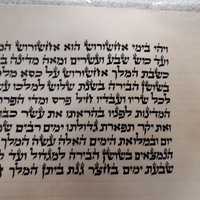 ויהי בימי אחשורוש הוא אחשורוש
ועד כוש שבע ועשרים ומאה
כשבת המלך אחשורוש על כסא
בשושן הבירה בשנת שלוש למלכו
לכל שריו ועבדיו חיל פרס ומדי
המדינות לפניו בהראתו את עשר
ואת יקר תפארת גדולתו ימים רבים
יום ובמלואת הימים האלה עשה
הנמצאים בשושן הבירה למגדול ועד
שבעת ימים בחצר גנת ביתן המלך